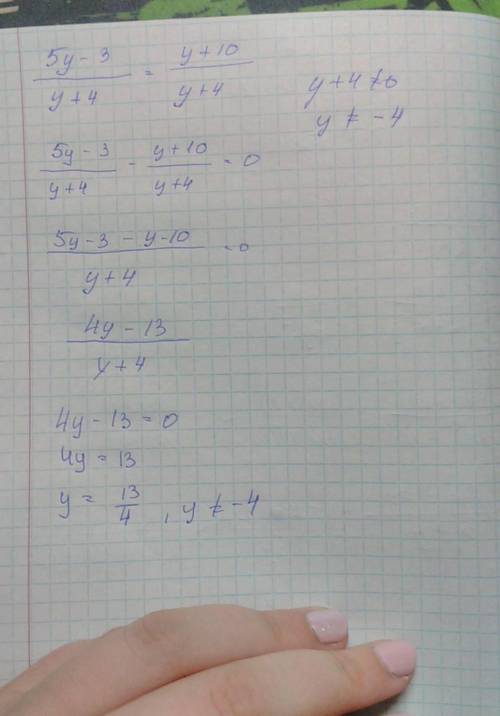 (5y - 3)/(y + 4) = (y + 10)/(y + 4)
y + 4 ≠ 0
y ≠ -4
(5y - 3)/(y + 4) - (y + 10)/(y + 4) = 0
(5y - 3 - y - 10)/(y + 4) = 0
(4y - 13)/(y + 4)
4y - 13 = 0
4y = 13
y = 13/4 , y ≠ -4